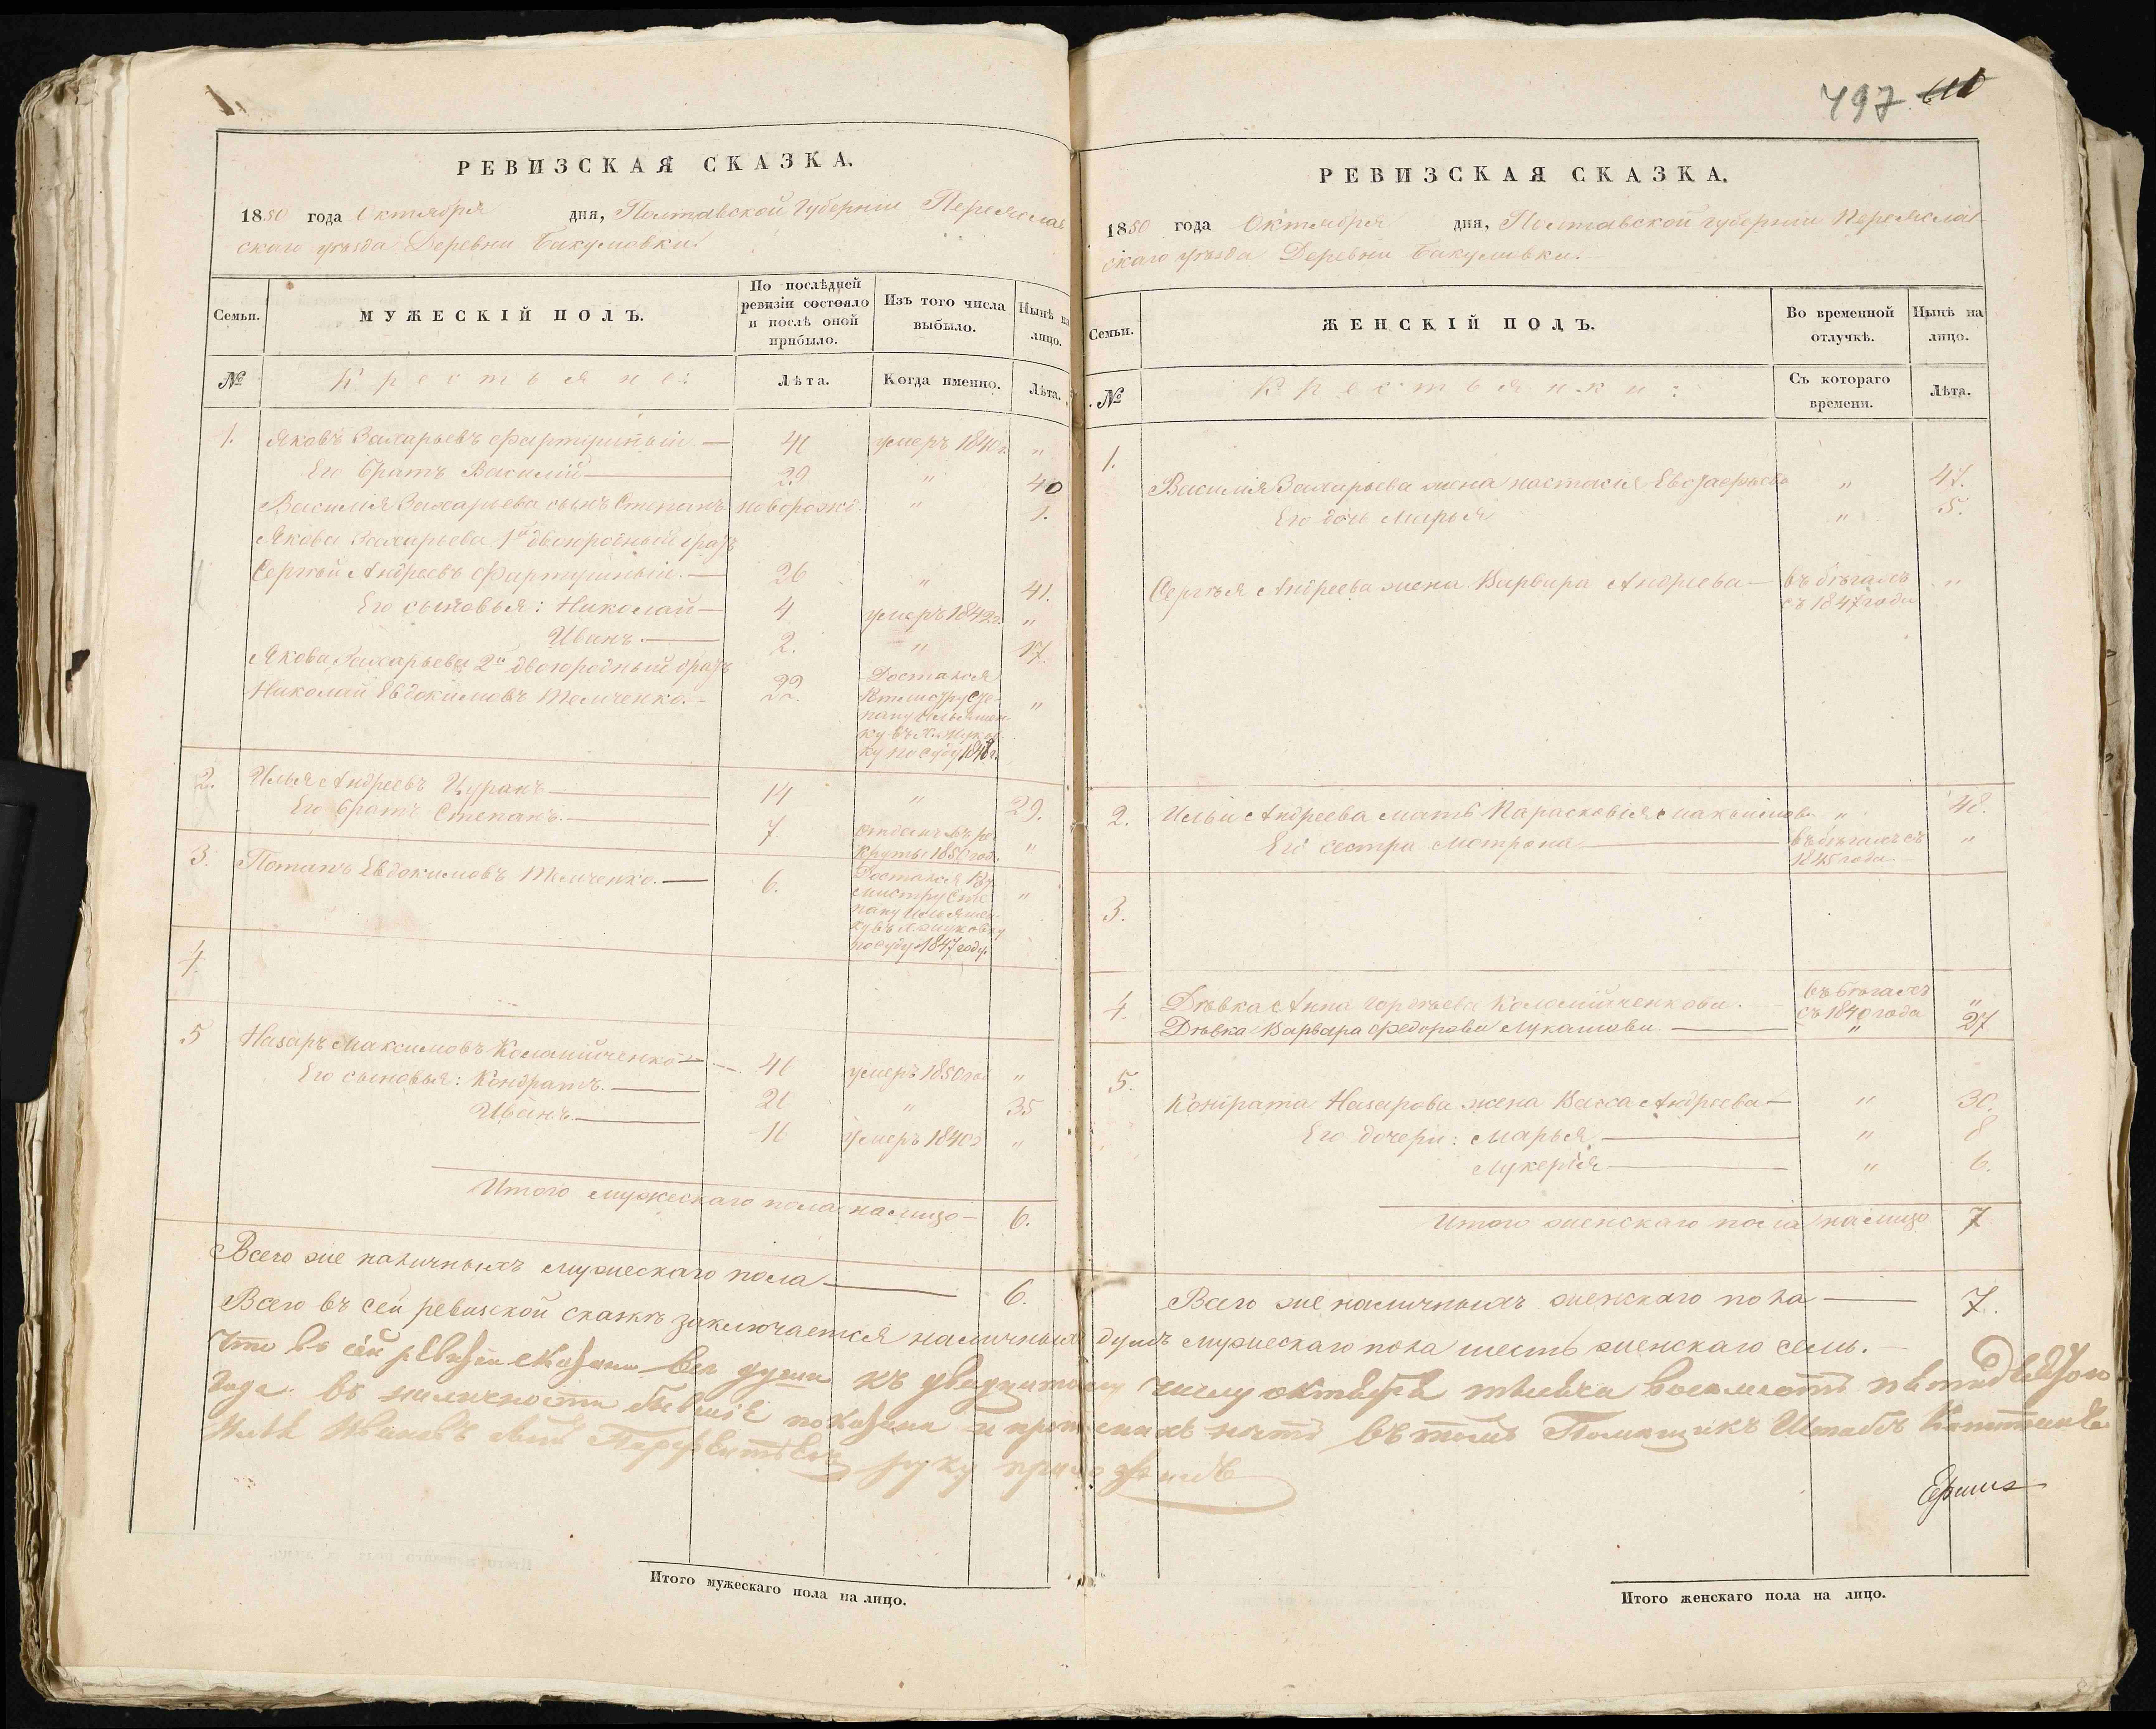 1.
РЕВИЗСКАЯ СКАЗКА.
1850 года Октября дня, Полтавской Губернии Переяслав
скаго уѣзда Деревни Бакумовки.
Семьи.
МУЖЕСКІЙ ПОЛЪ.
По послѣдней ревизіи состояло и послѣ оной прибыло.
Изъ того числа выбыло.
Нынѣ на лицо.
№
Крестьяне:
Лѣта.
Когда именно.
Лѣта.
1. Яковъ Захарьевъ — 41 умеръ 1840г. "
Его братъ Василій — 29 " 40
Василія Захарьева сынъ Степанъ новорожд. " 1.
Якова Захарьева 1й двоюродный братъ
Сергѣй Андреевъ — 26 " 41.
Его сыновья: Николай — 4 умеръ 1842г. "
Иванъ. — 2. " 17.
Якова Захарьева 2й двоюродный братъ
Николай Евдокимовъ — 22. "
Достался
Степану
по суду
2. Илья Андреевъ Цуранъ — 14 " 29.
Его братъ Степанъ. — 7. отданъ въ ре
круты 1850 год. "
3. Потапъ Евдокимовъ — 6. "
Достался
Сте
пану
по суду 1847 году.
4.
5 Назаръ Максимовъ Коломійченко — 41 умеръ 1850 год "
Его сыновья: Кондратъ. — 21 " 35
Иванъ. — 11 умеръ 1840г "
Итого мужескаго пола на лицо — 6.
Всего же наличныхъ мужескаго пола — 6.
Итого мужескаго пола на лицо.
497
РЕВИЗСКАЯ СКАЗКА.
1850 года Октября дня, Полтавской губернии Переяслав
скаго уѣзда Деревни Бакумовки.
Семьи.
ЖЕНСКІЙ ПОЛЪ.
Во временной отлучкѣ.
Нынѣ на лицо.
№
Крестьянки:
Съ котораго времени.
Лѣта.
1. Василія Захарьева жена Настасія " 47.
Его дочь Марья " 5.
Сергѣя Андреева жена Варвара Андреева — въ бѣгахъ
съ 1847 года "
2. Ильи Андреева мать Парасковія Максимова " 48.
Его сестра Мотрона — въ бѣгахъ съ
1845 года — "
3.
4. Дѣвка Анна Коломійченкова. въ бѣгахъ
съ 1840 года "
Дѣвка Варвара Федорова Лукашова — " 27
5. Кондрата Назарова жена Васса Андреева — " 30.
Его дочери: Марья — " 8
Лукерія — " 6.
Итого женскаго пола на лицо 7
Всего же наличныхъ женскаго пола — 7.
Всего въ сей ревизской сказкѣ заключается наличныхъ душъ мужескаго пола шесть женскаго семь. —
Что въ сей ревизіи все души къ числу октября тысяча восемсотъ пятидесятого
года въ наличности показаны и нѣтъ въ томъ Помещикъ Штабсъ Капитанъ
Иванъ Ивановъ сынъ руку приложилъ
Итого женскаго пола на лицо.